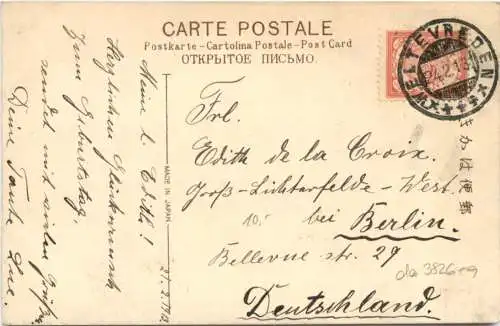 CARTE POSTALE
Postkarte - Cartolina Postale - Post Card
ОТКРЫТОЕ ПИСЬМО.
WELTEVREDEN
Meine l. Edith!
Herzlichen Glückwunsch
zum Geburtstag,
sendet mit vielen Grüßen
Deine Tante Lue.
27. 2. 1913
MADE IN JAPAN
Frl.
Edith de la Croix.
Groß-Lichterfelde-West.
10.- bei Berlin.
Bellevue str. 29
Deutschland.
da 3826+9
きかは便郵